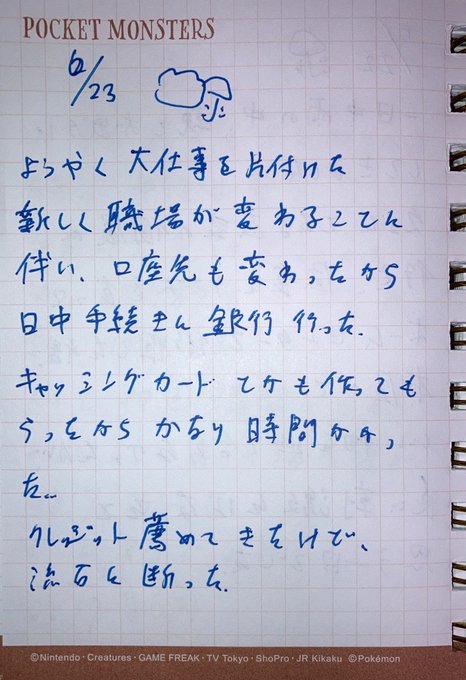 POCKET MONSTERS
6/23
ようやく大仕事を片付けた
新しく職場が変わることに
伴い、口座先も変わったから
日中手続きに銀行行った.
キャッシングカードとかも作っても
らったからかなり時間かかっ
た…
クレジット薦めてきたけど、
流石に断った.
©Nintendo・Creatures・GAME FREAK・TV Tokyo・ShoPro・JR Kikaku ©Pokémon